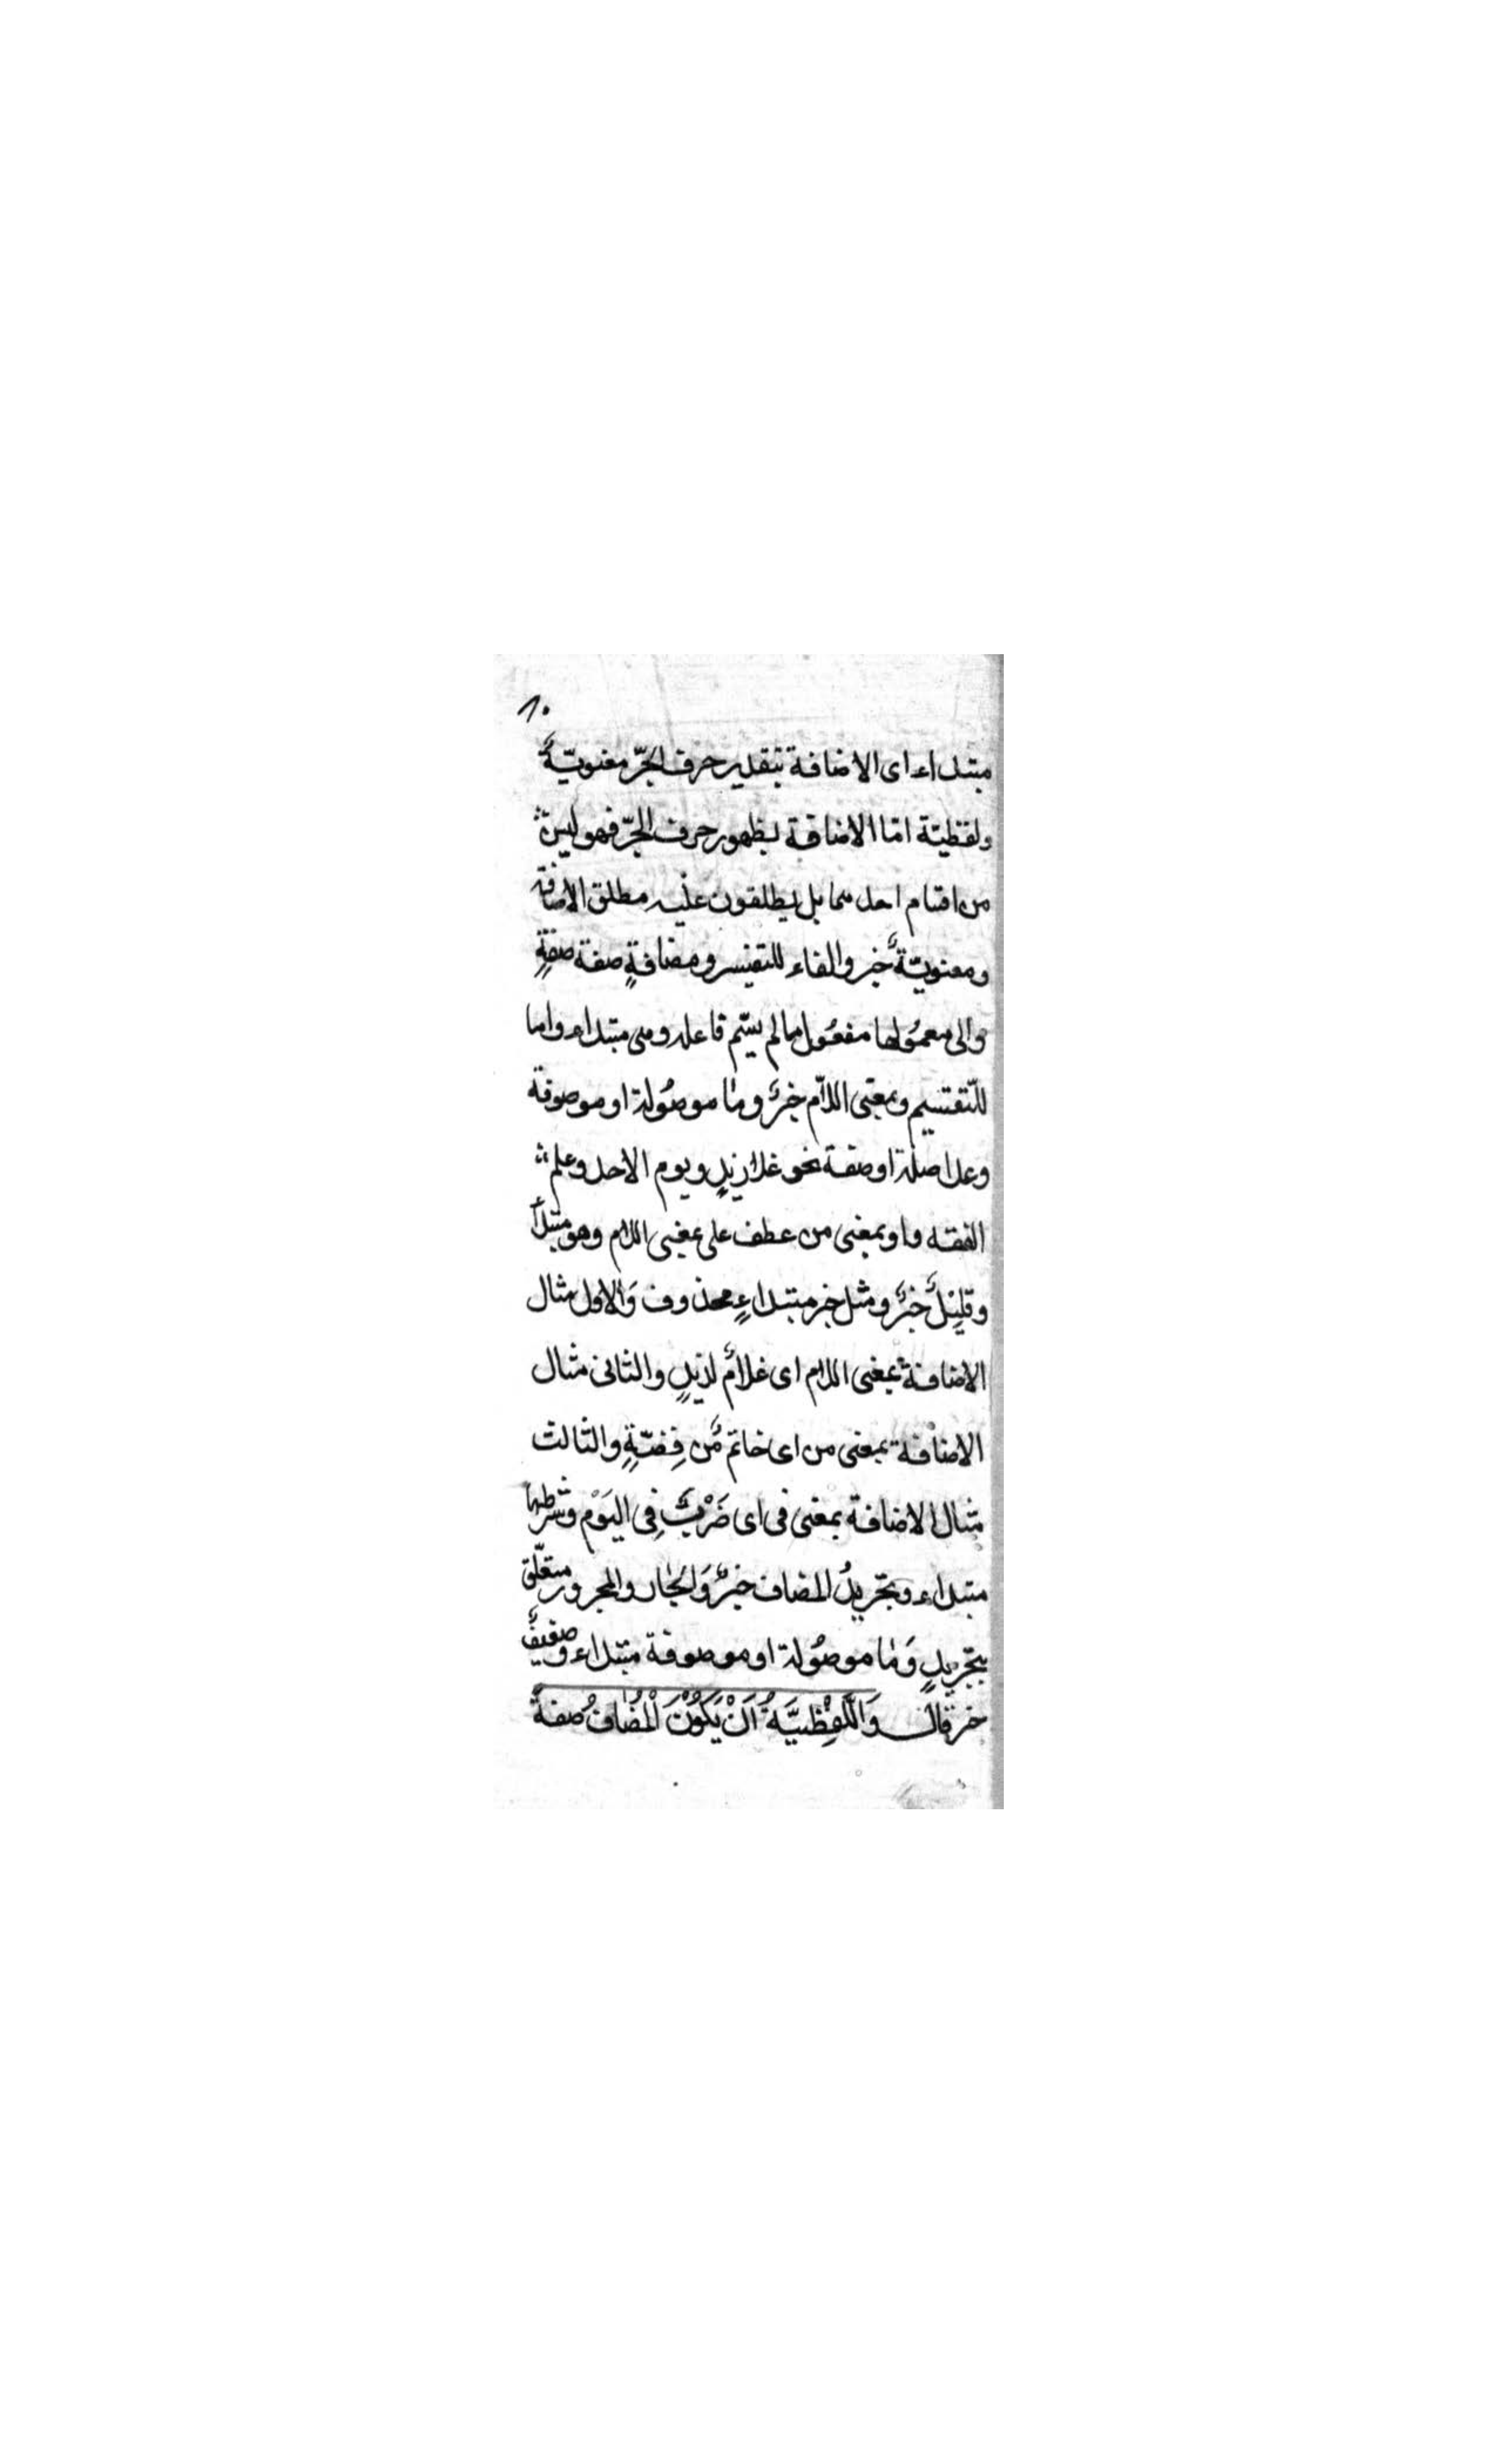 ١٠
مبتداء اى الاضافة بتقدير حرف الجرّ معنويّةٌ
ولفظيّة امّا الاضافة بظهور حرف الجرّ فهو ليس
من اقسام احدهما بل يطلقون عليه مطلق الاضافة
ومعنويّةٌ خبر والفاء للتفسير ومضافةٍ صفة صفةٍ
والى معمُولها مفعُول مالم يسّم فاعله وهى مبتداء واما
للّتقسيم وبمعنى اللاّم خبرٌ وما موصُولة او موصوفة
وعدا صلة او صفة نحو غلام زيدٍ ويوم الاحد وعلم
الفقه واو بمعنى من عطف على بمعنى اللام وهو مبتدأ
وقليلٌ خبرٌ ومثل خبر مبتداءٍ محذوف وَالاول مثال
الاضافة بمعنى اللام اى غلامٌ لزيدٍ والثانى مثال
الاضافة بمعنى من اى خاتمٌ من فِضّةٍ والثالث
مثال الاضافة بمعنى فى اى ضَرْبٌ فِى اليَوْم وشرطها
مبتداء وتجريدُ المضاف خبرٌ وَالجار والمجرور متعلّق
بتجريدٍ وَما موصُولة او موصوفة مبتداء وضعيفٌ
خبر قال وَاللَّفْظِيَّةُ اَنْ يَكُوْنَ الْمُضَافُ صفةً